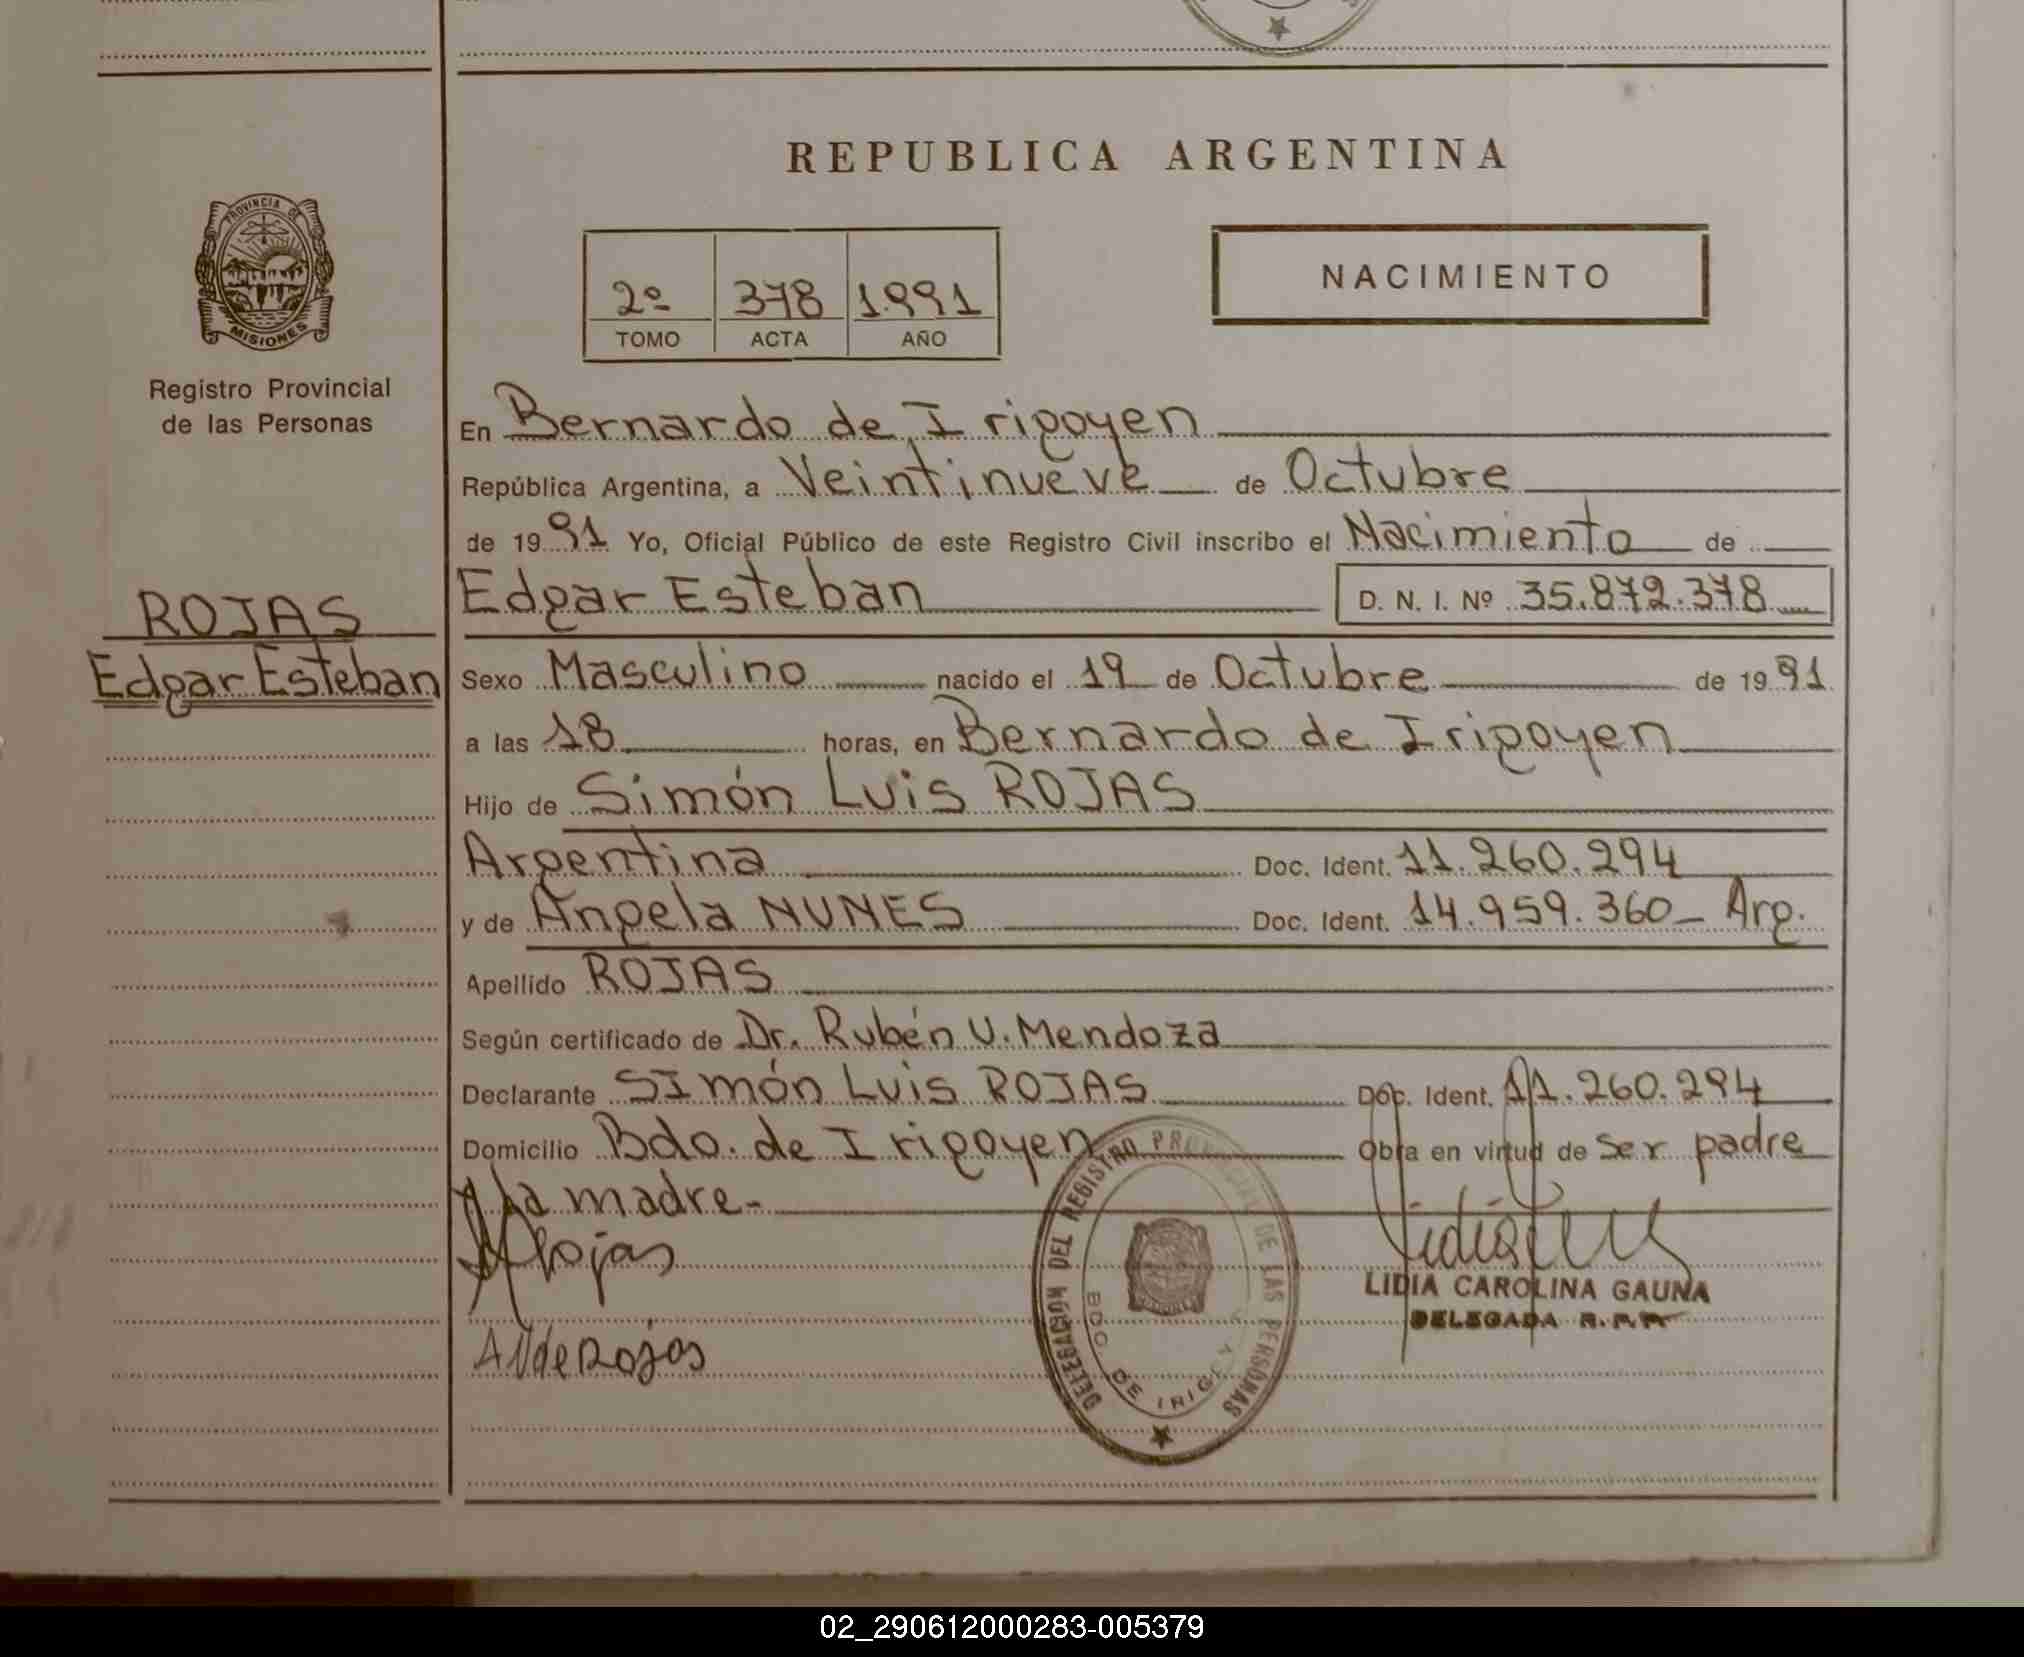 REPUBLICA ARGENTINA
PROVINCIA DE
MISIONES
Registro Provincial
de las Personas
2º 378 1.991
TOMO ACTA AÑO
NACIMIENTO
En Bernardo de Irigoyen
República Argentina, a Veintinueve de Octubre
de 1991 Yo, Oficial Público de este Registro Civil inscribo el Nacimiento de
Edgar Esteban D. N. I. Nº 35.872.378
ROJAS
Edgar Esteban
Sexo Masculino nacido el 19 de Octubre de 1991
a las 18 horas, en Bernardo de Irigoyen
Hijo de Simón Luis ROJAS
Argentina Doc. Ident. 11.260.294
y de Angela NUNES Doc. Ident. 14.959.360_ Arg.
Apellido ROJAS
Según certificado de Dr. Rubén U. Mendoza
Declarante SImón Luis ROJAS Doc. Ident. 11.260.294
Domicilio Bdo. de Irigoyen Obra en virtud de ser padre
La madre-
Rojas
LIDIA CAROLINA GAUNA
DELEGADA R.P.P.
A N de Rojas
DELEGACION DEL REGISTRO PROVINCIAL DE LAS PERSONAS
BDO DE IRIGOYEN
02_290612000283-005379